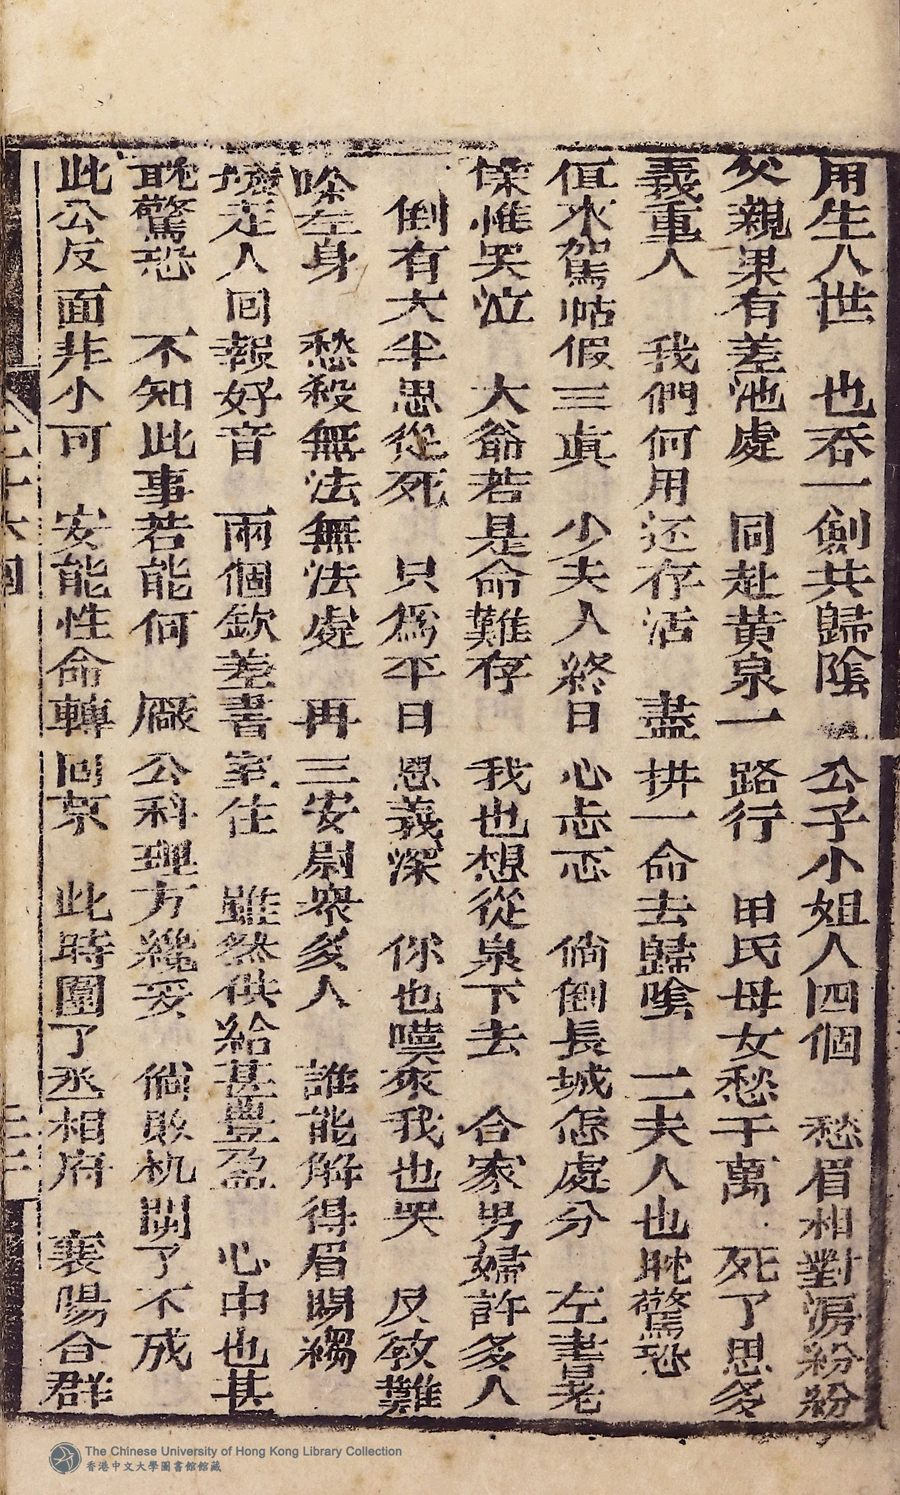 用生人世　也吞一劍共歸陰　公子小姐人四個　愁眉相對淚紛紛
父親果有差池處　同赴黃泉一路行　甲氏母女愁千萬　死了思多
義重人　我們何用还存活　盡拚一命去歸陰　二夫人也耽驚恐
恒水駕帖假三真　少夫人終日心忐忑　倘倒長城怎處分　左書老
僕惟哭泣　大爺若是命難存　我也想從泉下去　合家男婦許多人
倒有大半思從死　只為平日恩義深　你也嘆來我也哭　反教難
左身　愁殺無法無法處　再三安尉衆多人　誰能解得眉間縐
走人回報好音　兩個欽差書室住　雖然供給甚豐盈　心中也甚
耽驚恐　不知此事若能何　厰公科理方纔妥　倘敗机関了不成
此公反面非小可　安能性命轉回京　此時圍了丞相府　襄陽合群
二十六回
二十二
The Chinese University of Hong Kong Library Collection
香港中文大學圖書館館藏